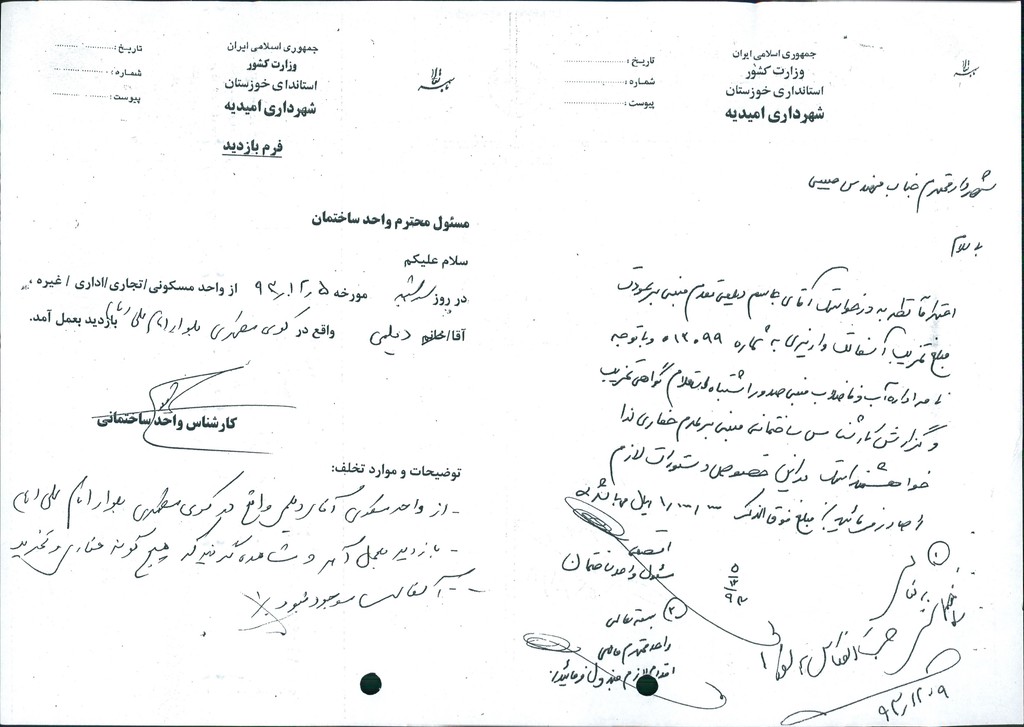 بسمه تعالی
جمهوری اسلامی ایران
وزارت کشور
استانداری خوزستان
شهرداری امیدیه
تاریخ :
شماره :
پیوست :
شهردار محترم جناب مهندس
با سلام
احتراماً نظر به درخواست آقای جاسم دیلمی مبنی بر عودت
مبلغ تخریب آسفالت واریزی به شماره ۰۱۳۰۹۹ و با توجه
نامه اداره آب و فاضلاب مبنی صدور اشتباه استعلام گواهی تخریب
و گزارش کارشناس ساختمانی مبنی بر عدم حفاری لذا
خواهشمند است در این خصوص دستورات لازم
را صادر فرمائید. مبلغ فوق الذکر ریال میباشد
مسئول واحد ساختمان
۵
۱۲
۹۳
۱
۲ بسمه تعالی
واحد محترم مالی
اقدام لازم مبذول فرمائید.
۹۳/۱۲/۰۹
بسمه تعالی
جمهوری اسلامی ایران
وزارت کشور
استاندای خوزستان
شهرداری امیدیه
تاریخ :
شماره :
پیوست :
فرم بازدید
مسئول محترم واحد ساختمان
سلام علیکم
در روز سه شنبه مورخه ۹۳/۱۲/۵ از واحد مسکونی/تجاری/اداری / غیره ،
آقا/خانم دیلمی واقع در کوی مطهری بلوار امام علی بازدید بعمل آمد.
کارشناس واحد ساختمانی
توضیحات و موارد تخلف:
- از واحد مسکونی آقای دیلمی واقع در کوی مطهری بلوار امام علی
- بازدید بعمل آمد و مشاهده گردید که هیچ گونه حفاری و تخریب
آسفالت موجود نبود.